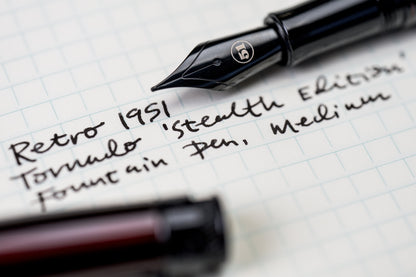 51
Retro 1951
Tornado 'Stealth Edition'
Fountain Pen, Medium